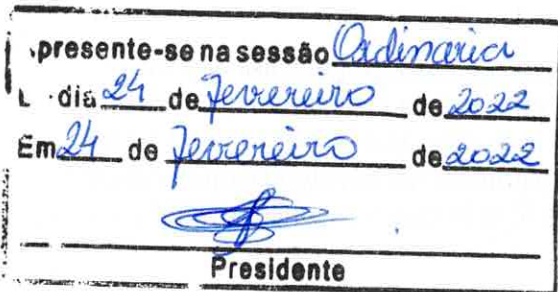 presente-se na sessão Ordinaria
dia 24 de Fevereiro de 2022
Em 24 de Fevereiro de 2022
Presidente